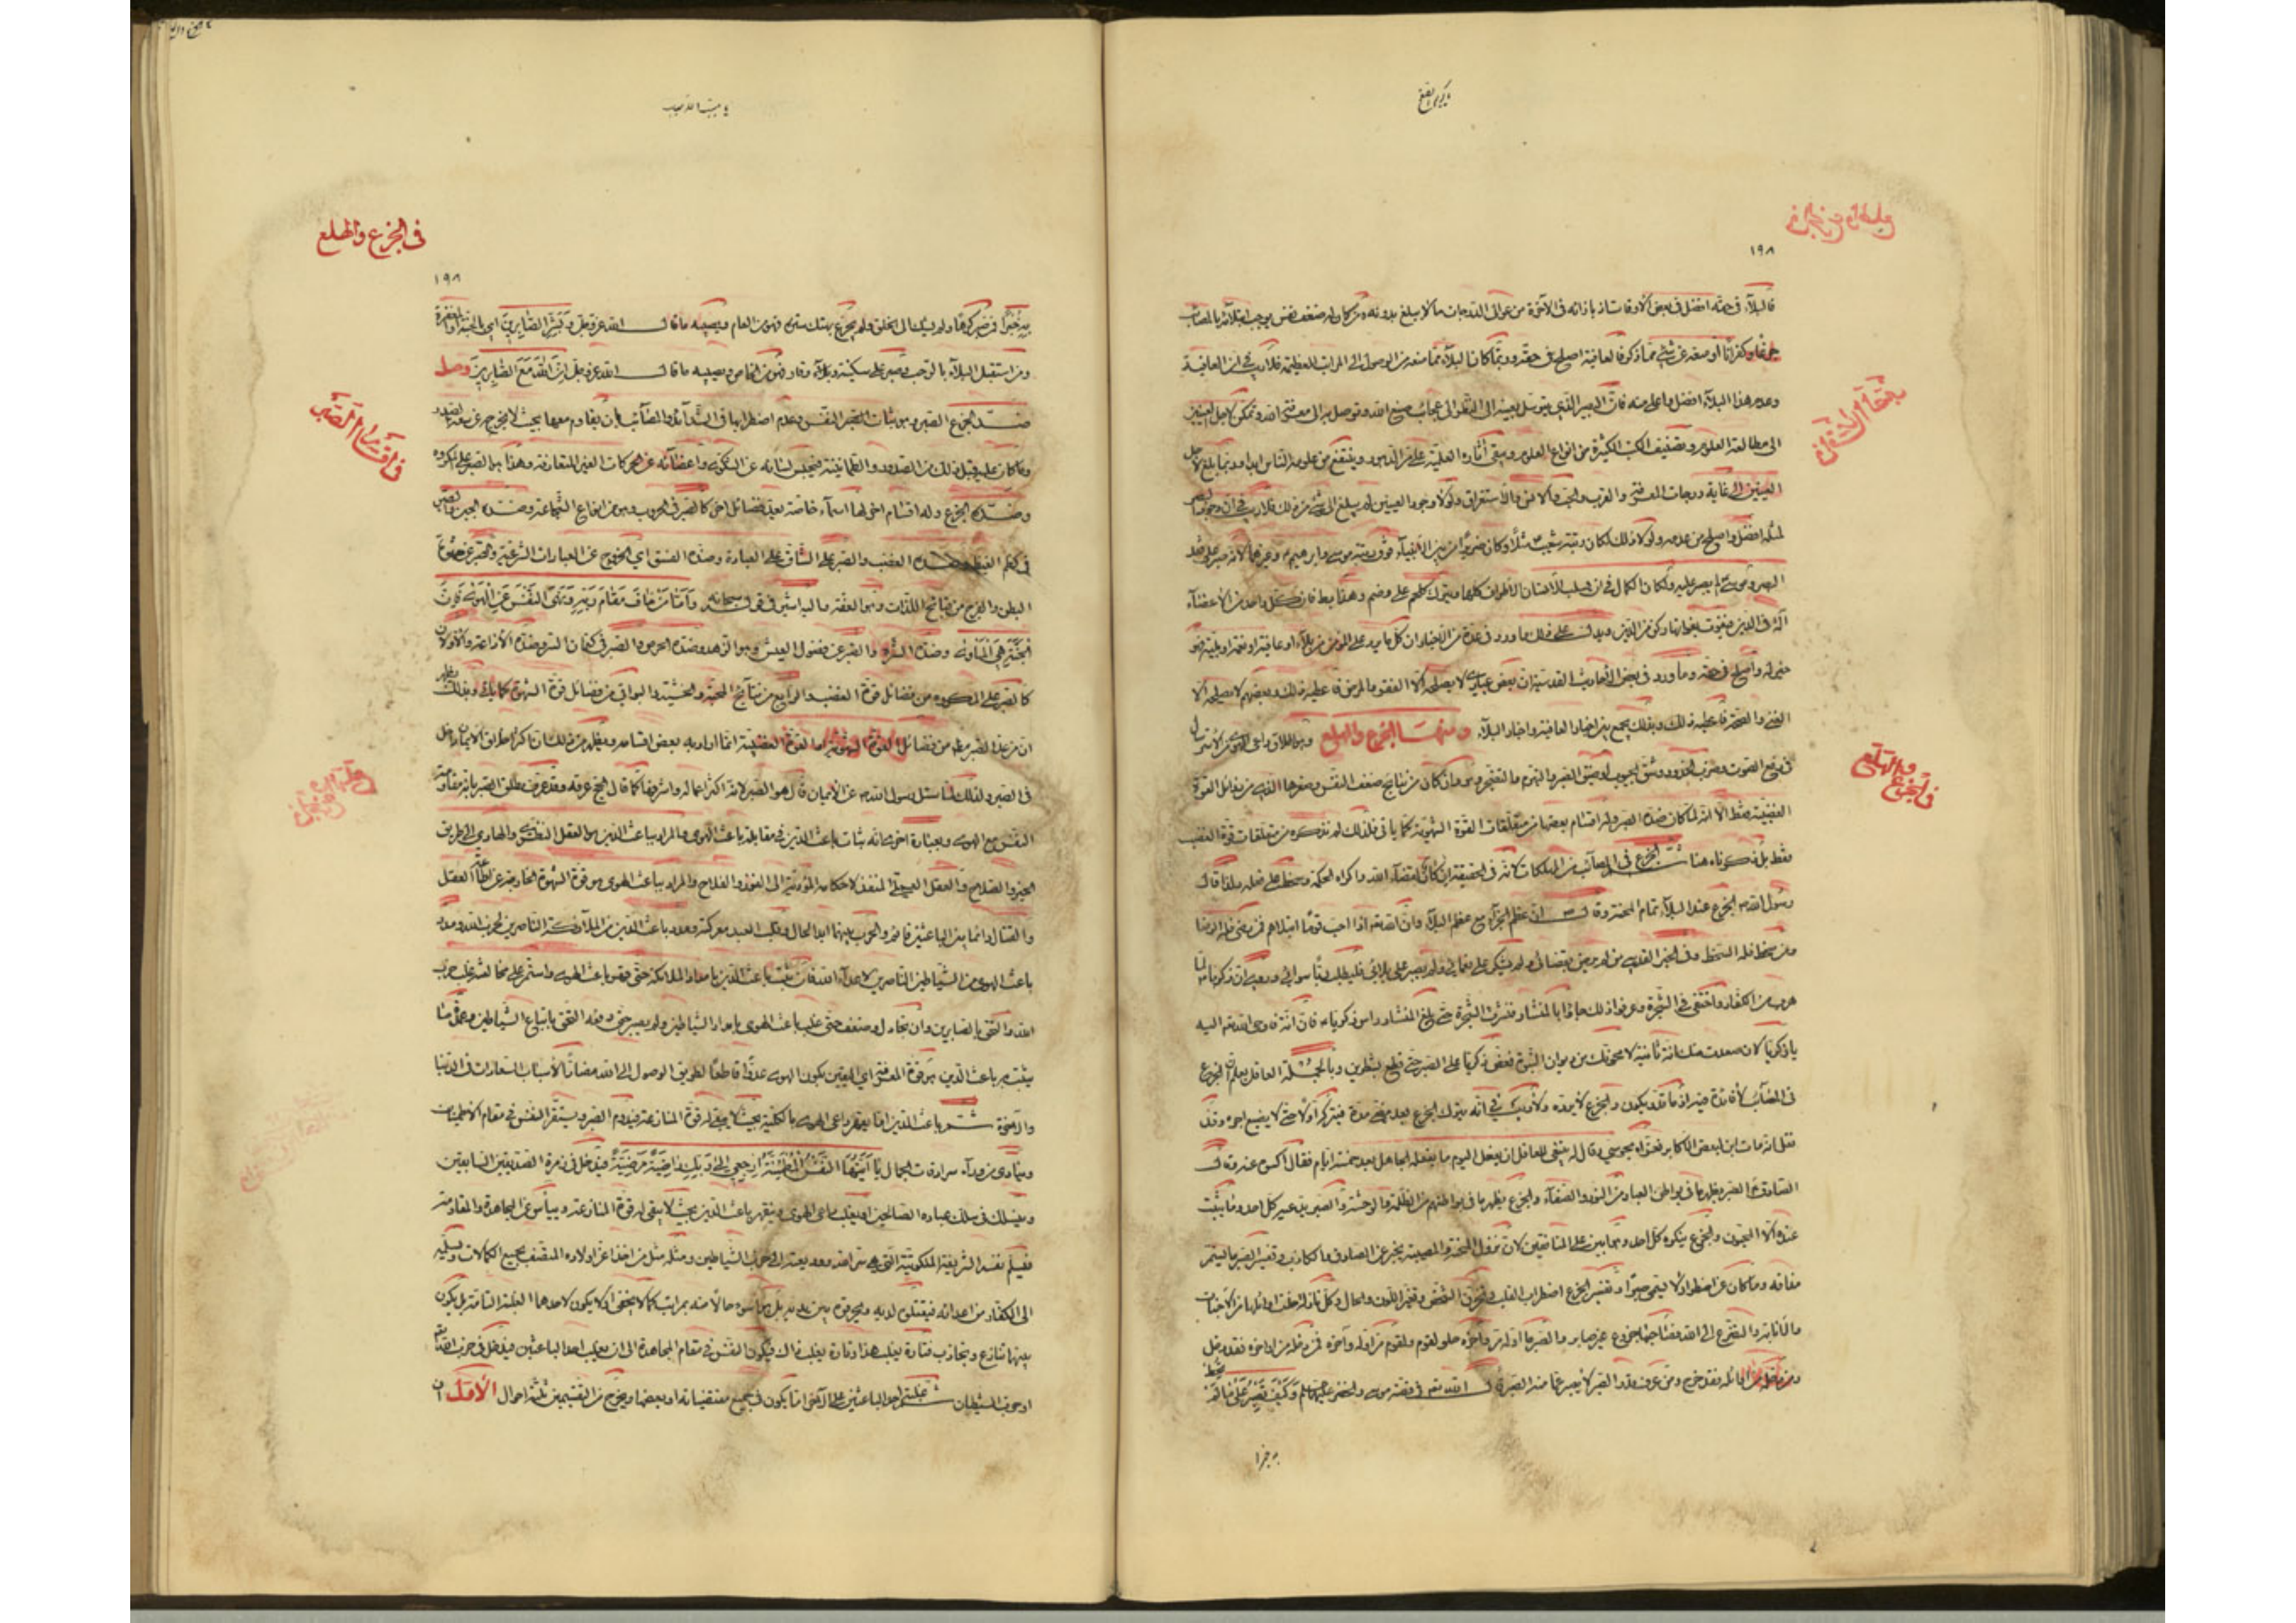 ١٩٨
فالبلاء في حقه افضل في بعض الاوقات اذ بازائه في الآخرة من عوالي الدرجات ما لا يبلغ بدونه ومن كان له ضعف نفس يوجب ابتلائه بالمصائب
جزعا وكفرانا او منعه عن شئ مما ذكر فالعافية اصلح في حقه وربما كان البلاء مما منعه من الوصول الى المراتب العظيمة فلا ريب في ان العافية
وعدم هذا البلاء افضل واعلى منه فان البصير الذي يتوسل بعينه الى النظر الى عجائب صنع الله وتوصل به الى معرفة الله وتمكن لاجل العينين
الى مطالعة العلوم وتصنيف الكتب الكثيرة من انواع العلوم ويبقى آثاره العلمية على مر الدهور وينتفع من علومه الناس ابدا وربما بلغ لاجل
العينين الى غاية درجات المعرفة والقرب والحب والانس والاستغراق ولولا وجود العينين لم يبلغ الى شئ من ذلك فلا ريب في ان وجود البصر
لمثله افضل واصلح من عدمه ولولا ذلك لكان رتبة شعيب مثلا وكان ضريرا من بين الانبياء فوق رتبة موسى وابراهيم وغيرهما لانه صبر على فقد
البصر وموسى لم يصبر عليه ولكان الكمال في ان يسلب الانسان الاطراف كلها ويترك كلحم على وضم وهذا باطل فان كل واحد من الاعضاء
آلة في الدين فيفوت بفواتها ركن من الدين ويدل على ذلك ما ورد في عدة من الاخبار ان كل ما يرد على المؤمن من بلاء او عافية او نعمة او بلية فهو
خير له واصلح في حقه وما ورد في بعض الاحاديث القدسية ان بعض عبادي لا يصلحه الا الفقر والمرض فاعطيه ذلك وبعضهم لا يصلحه الا
الغنى والصحة فاعطيه ذلك وبذلك يجمع بين اخبار العافية واخبار البلاء ومنها الجزع والهلع وهو اطلاق داعي الهوى من الاسترسال
في رفع الصوت وضرب الخدود وشق الجيوب او ضيق الصدر والتبرم والتضجر وهو وان كان من نتائج ضعف النفس وصغرها الذي من رذائل القوة
الغضبية فقط الا انه لما كان ضده الصبر وله اقسام بعضها من متعلقات القوة الشهوية كما ياتي فلذلك لم نذكره من متعلقات قوة الغضب
فقط بل ذكرناه هنا ثم الجزع في المصائب من المهلكات لانه في الحقيقة انكار لقضاء الله واكراه لحكمه وسخط على فعله ولذا قال
رسول الله ص الجزع عند البلاء تمام المحنة وقال ص ان عظم الجزاء مع عظم البلاء وان الله تعالى اذا احب قوما ابتلاهم فمن رضي فله الرضا
ومن سخط فله السخط وفي الخبر القدسي من لم يرض بقضائي ولم يشكر على نعمائي ولم يصبر على بلائي فليطلب ربا سوائي وروي ان زكريا لما
هرب من الكفار واختفى في الشجرة وعرفوا ذلك جاؤا بالمنشار فنشرت الشجرة حتى بلغ المنشار راس زكريا ع فان انة فاوحى الله تعالى اليه
يا زكريا لان صعدت منك انة ثانية لامحونك من ديوان النبوة فعض زكريا على الصبر حتى قطع بشطرين وبالجملة العاقل يعلم ان الجزع
في المصائب لا فائدة فيه اذ ما قدر يكون والجزع لا يرده ولا ريب في انه يترك الجزع بعد مضي مدة فيتركه اولا حتى لا يضيع اجره وقد
نقل انه مات ابن لبعض الاكابر فعزاه مجوسي وقال له ينبغي للعاقل ان يفعل اليوم ما يفعله الجاهل بعد خمسة ايام فقال اكتبوه عنه وقال
الصادق ع الصبر يظهر ما في بواطن العباد من النور والصفاء والجزع يظهر ما في بواطنهم من الظلمة والوحشة والصبر يدعيه كل احد وما يثبت
عنده الا المخبتون والجزع ينكره كل احد وهو ابين على المنافقين لان نزول المحنة والمصيبة يخبر عن الصادق والكاذب وتفسير الصبر ما يستمر
مذاقه وما كان عن اضطراب لا يسمى صبرا وتفسير الجزع اضطراب القلب وتحزن الشخص وتغير اللون والحال وكل نازلة خلت اوائلها من الاخبات
والانابة والتضرع الى الله فصاحبها جزوع غير صابر والصبر ما اوله مر وآخره حلو لقوم ولقوم مر اوله وآخره فمن دخله من اواخره فقد دخل
ومن دخله من اوائله فقد خرج ومن عرف قدر الصبر لا يصبر عما منه الصبر قال الله تعالى في قصة موسى والخضر عليهما السلام وكيف تصبر على ما لم تحط
به خبرا
في الجزع والهلع
١٩٨
به خبرا فمن صبر كرها ولم يشك الى الخلق ولم يجزع بهتك ستره فهو من العام ونصيبه ما قال الله عز وجل وبشر الصابرين اي بالجنة والمغفرة
ومن استقبل البلاء بالرحب وصبر على سكينة ووقار فهو من الخاص ونصيبه ما قال الله عز وجل ان الله مع الصابرين وصل
ضد الجزع الصبر وهو ثبات النفس وعدم اضطرابها في الشدائد والمصائب بان تقاوم معها بحيث لا يخرجه عن سعة الصدر
وما كان عليه قبل ذلك من السرور والطمانينة فيحبس لسانه عن الشكوى واعضائه عن الحركات الغير المتعارفة وهذا هو الصبر على المكروه
وضده الجزع وله اقسام اخر لها اسماء خاصة تعد فضائل اخر كالصبر في الحروب وهو من انواع الشجاعة وضده الجبن والصبر
في كظم الغيظ وضده الغضب والصبر على المشاق على العبادة وضده الفسق اي الخروج عن العبادات الشرعية والصبر عن شهوة
البطن والفرج من قبائح اللذات وهو العفة واليه اشير في قوله سبحانه واما من خاف مقام ربه ونهى النفس عن الهوى فان
الجنة هي الماوى وضده الشره والصبر عن فضول العيش وهو الزهد وضده الحرص والصبر في كتمان السر وضده الاذاعة والاولان
كالصبر على المكروه من فضائل قوة الغضب والرابع من نتائج المحبة والخشية والبواقي من فضائل قوة الشهوة كما ياتي وبذلك يظهر
ان من عد الصبر مطلقا من فضائل القوة الشهوية او القوة الغضبية انما اراد به بعض اقسامه ويظهر من ذلك ان اكثر اخلاق الايمان داخل
في الصبر ولذلك لما سئل رسول الله ص عن الايمان قال هو الصبر لانه اكثر اعماله واشرفها كما قال الحج عرفة وقد عرف مطلق الصبر بانه مقاومة
النفس مع الهوى وبعبارة اخرى انه ثبات باعث الدين في مقابلة باعث الهوى والمراد بباعث الدين هو العقل النظري والهادي الى طريق
الخير والصلاح والعقل العملي المنفذ لاحكامه المؤدية الى الفوز والفلاح والمراد بباعث الهوى هو قوة الشهوة الخارجة عن اطاعة العقل
والقتال دائما بين الباعثين قائم والحرب بينهما ابدا سجال وقلب العبد معركته ومدد باعث الدين من الملائكة الناصرين لحزب الله ومدد
باعث الهوى من الشياطين الناصرين لاعداء الله فان ثبت باعث الدين بامداد الملائكة حتى قهر باعث الهوى واستمر على مخالفته غلب حزب
الله والتحق بالصابرين وان تخاذل وضعف حتى غلب باعث الهوى بامداد الشياطين ولم يصبر في دفعه التحق باتباع الشياطين وعمدة ما
يثبت به باعث الدين هي قوة المعرفة اي اليقين بكون الهوى عدوا قاطعا لطريق الوصول الى الله مضادا لاسباب السعادات في الدنيا
والآخرة ثم باعث الدين اما يقهر داعي الهوى بالكلية بحيث لا يبقى له قوة المنازعة فيدوم الصبر ويستقر النفس في مقام الاطمينان
وينادى من وراء سرادقات الجمال يا ايتها النفس المطمئنة ارجعي الى ربك راضية مرضية فيدخل في زمرة الصديقين السابقين
وينسلك في سلك عباده الصالحين او يغلب داعي الهوى وينقهر باعث الدين بحيث لا يبقى له قوة المنازعة وييأس عن المجاهدة والمقاومة
فيسلم نفسه الشريفة الملكوتية التي هي سر الله ووديعته الى حزب الشياطين ومثله مثل من اخذ اعز اولاده المتصف بجميع الكمالات ويسلمه
الى الكفار من اعدائه فيقتلونه لديه ويحرقونه بين يديه بل هو اسوء حالا منه بمراتب كما لا يخفى او لا يكون لاحدهما الغلبة التامة بل يكون
بينهما تنازع وتجاذب فتارة يغلب هذا وتارة يغلب ذاك فيكون النفس في مقام المجاهدة الى ان يغلب احد الباعثين فيدخل في حزب الله تعالى
او حزب الشيطان ثم غلبة احد الباعثين على الآخر اما يكون في جميع مقتضياته او بعضها ويخرج من القسمين ثلثة احوال الاول ان
في اقسام الصبر
في الجزع والهلع